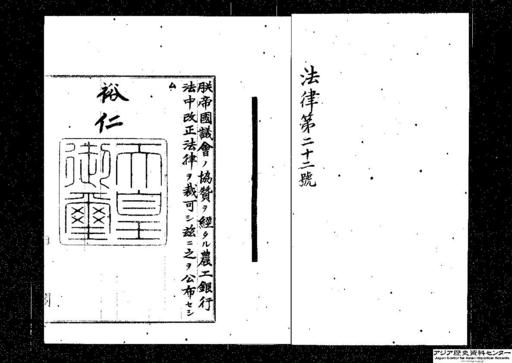 法律第二十二號
朕帝國議會ノ協贊ヲ經タル農工銀行
法中改正法律ヲ裁可シ茲ニ之ヲ公布セシ
ム
裕仁
天皇
御璽
アジア歴史資料センター
Japan Center for Asian Historical Records